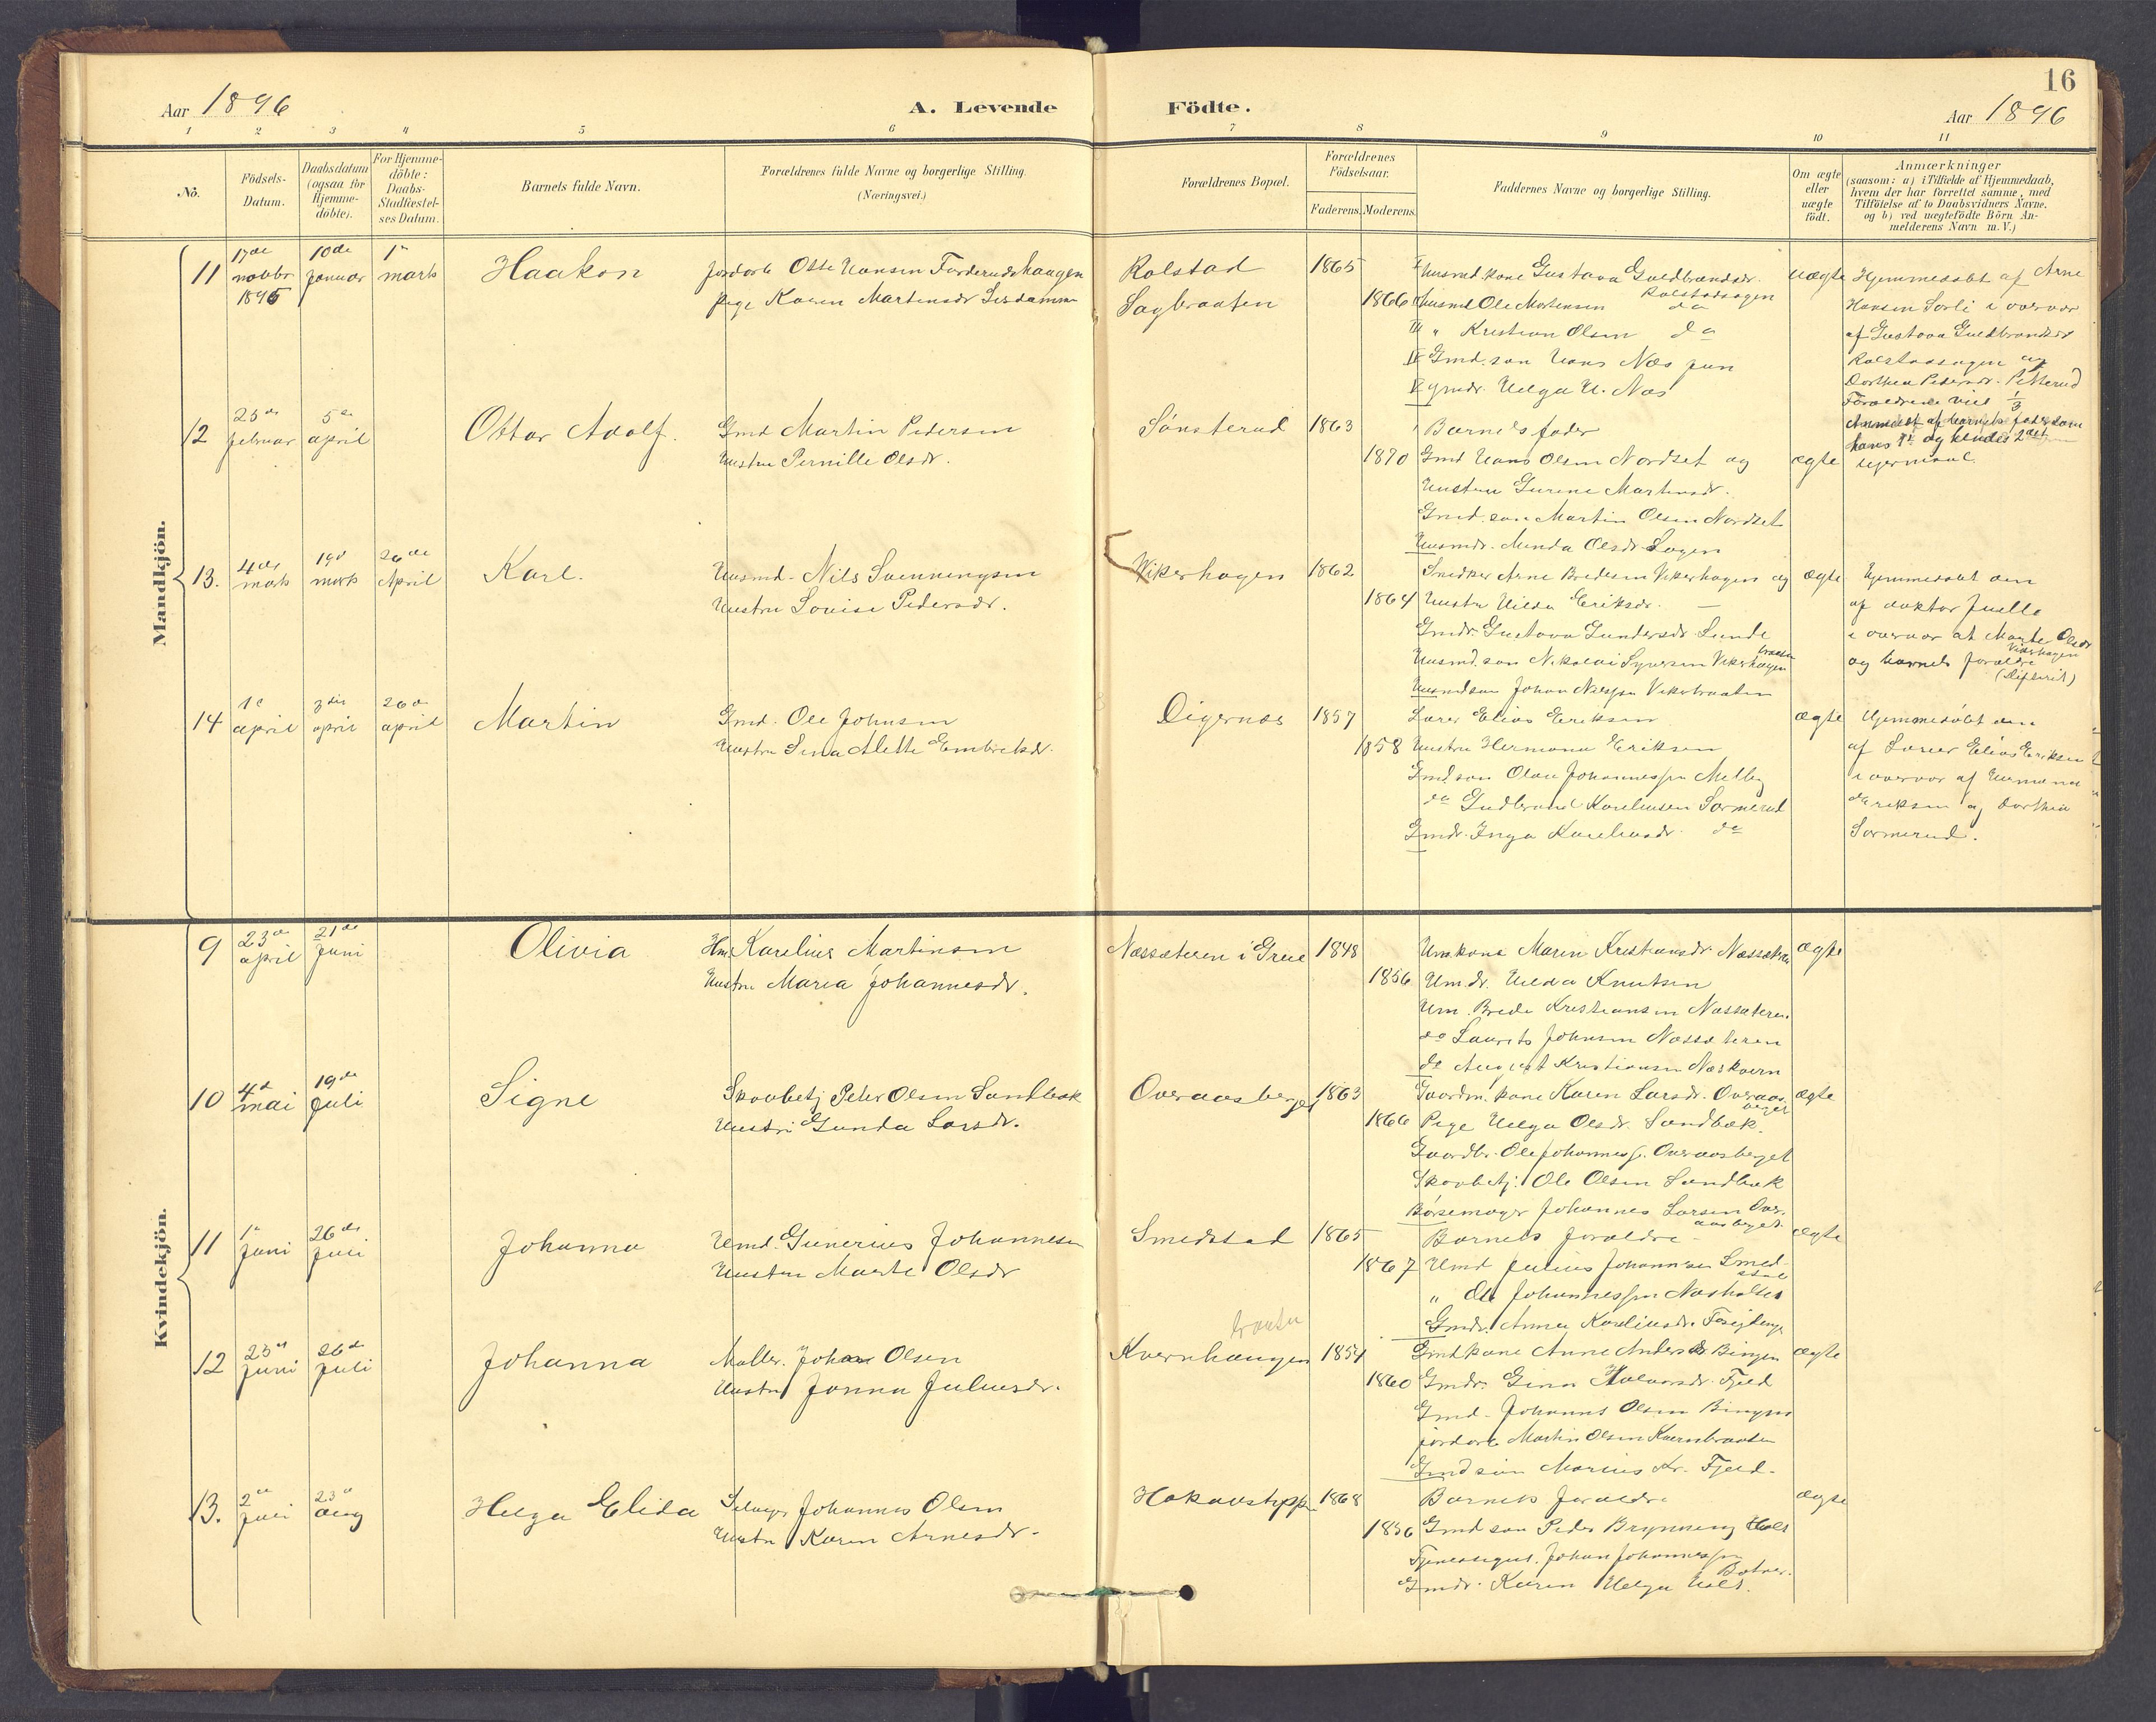 16
Aar 1896
A. Levende Födte.
Aar 1896
1 2 3 4 5 6 7 8 9 10 11
No.
Födsels-Datum.
Daabsdatum (ogsaa for Hjemme-döbte).
For Hjemme-döbte: Daabs-Stadfæstel-ses Datum.
Barnets fulde Navn.
Forældrenes fulde Navne og borgerlige Stilling.
(Næringsvei.)
Forældrenes Bopæl.
Forældrenes Födselsaar.
Faderens. Moderens.
Faddernes Navne og borgerlige Stilling.
Om ægte eller uægte födt.
Anmærkninger
(saasom: a) i Tilfælde af Hjemmedaab,
hvem der har forrettet samme, med
Tilföielse af to Daabsvidners Navne.
og b) ved uægtefödte Börn An-
melderens Navn m. V.)
Mandkjön.
11 17de novbr 1895 10de januar 1ste marts Haakon
Otte Hansen Forderudshaugen
pige Karen Martinsdr
Rolstad
Sagbraaten
1865
1866
I Husmd.kone Gustava Guldbrandsdr.
Rolstadsagen
II Husmd Ole Mortensen do
III " Kristian Olsen do
IV Gmd.søn Hans Næs
V Gmdr. Helga H. Næs
uægte
Hjemmedøbt af Arne
Hansen Sorli i overvær
af Gustava Guldbrandsdr
Rolstadsagen og
Dorthea Pedersdr. Petterud
Forældrene viet 1/3
Anmeldt af barnets fader som
hans 1ste og hendes 2det
leiermaal.
12 februar 5te april Ottar Adolf.
Gmd Martin Pedersen
Hustru Pernille Olsdr.
Sønsterud
1863
1870
Barnets fader
Gmd Hans Olsen Nordset og
Hustru Gurine Martinsdr.
Gmd. søn Martin Olsen Nordset
Husmdr. Minda Olsdr. Sagen
ægte
13. 4de marts 19d marts 26de April Karl.
Husmd. Nils Svenningsen
Hustru Louise Pedersdr.
Vikerhagen
1862
1864
Snedker Arne Bredesen Vikerhagen og
Hustru Hilda Eriksdr. —
Gmdr. Gustava Gundersdr. Lunde
Husmd. søn Nikolai Syversen Vikerhagen
braaten
Husmdsøn Johan Nilssen Vikerbraaten
ægte
Hjemmedøbt den
af doktor Juell
i overvær af Marte Olsdr
Vikerhagen
og barnets forældre
(Difterit)
14 1ste april 3die april 26de april Martin
Gmd. Ole Johnsen
Hustru Sina Alette Embretsdr.
Digernæs
1857
1858
Lærer Elias Eriksen
Hustru Hermana Eriksen
Gmd.søn Olav Johannessen Melby
do Gudbrand Karelinsen Sormerud
Gmdr. Inga Karelinsdr. do
ægte
Hjemmedøbt den
af Lærer Elias Eriksen
i overvær af Hermana
Eriksen og Dorthea
Sormerud.
Kvindekjön.
9 23de april 21de juni Olivia
Hm. Karelius Martinsen
Hustru Maria Johannesdr.
Næssæteren i Grue
1848
1856
Hm.kone Maren Kristiansdr. Næssæteren
Hm.dr. Hilda Knutsen
Hm. Brede Kristiansen Næssæteren
do Laurits Johnsen Næssæteren
do August Kristiansen Næskvern
ægte
10 4de mai 19de juli Signe
Skovbetj Peter Olsen Sandbæk
Hustru Gunda Larsdr.
Overaasberget
1863
1866
Gaardm. kone Karen Larsdr. Overaas-
berget
Pige Helga Olsdr. Sandbæk.
Gaardbr. Ole Johannes. Overaasberget
Skovbetj. Ole Olsen Sandbæk
Børsemager Johannes Larsen Over-
aasberget.
ægte
11 1ste juni 26de juli Johanna
Hmd. Gunerius Johannesen
Hustru Marte Olsdr
Smedstad
1865
1867
Barnets forældre
Hmd Julius Johannesen Smed-
stad
" Ole Johannessen Næsholtet
Gmdr. Anna Karelinsdr.
ægte
12 23de juni 26de juli Johanna
Møller. Johan Olsen
Hustru Jonna Juliusdr.
Kvernhaugen
braaten
1854
1860
Gmdkone Anne Andersdr. Bingen
Gmdr. Gina Halvorsdr. Fjeld
Gmd. Johannes Olsen Bingen
jordarb Martin Olsen Kvernbraaten
Gmd søn Marius Kr. Fjeld.
ægte
13. 2den juli 23de aug Helga Elida
Johannes Olsen
Hustru Karen Arnesdr.
1868
1856
Barnets forældre
Gmd søn Peder Brynning Holt
Johan Johannessen
Botner.
Gmdr. Karen Helga Holt.
ægte